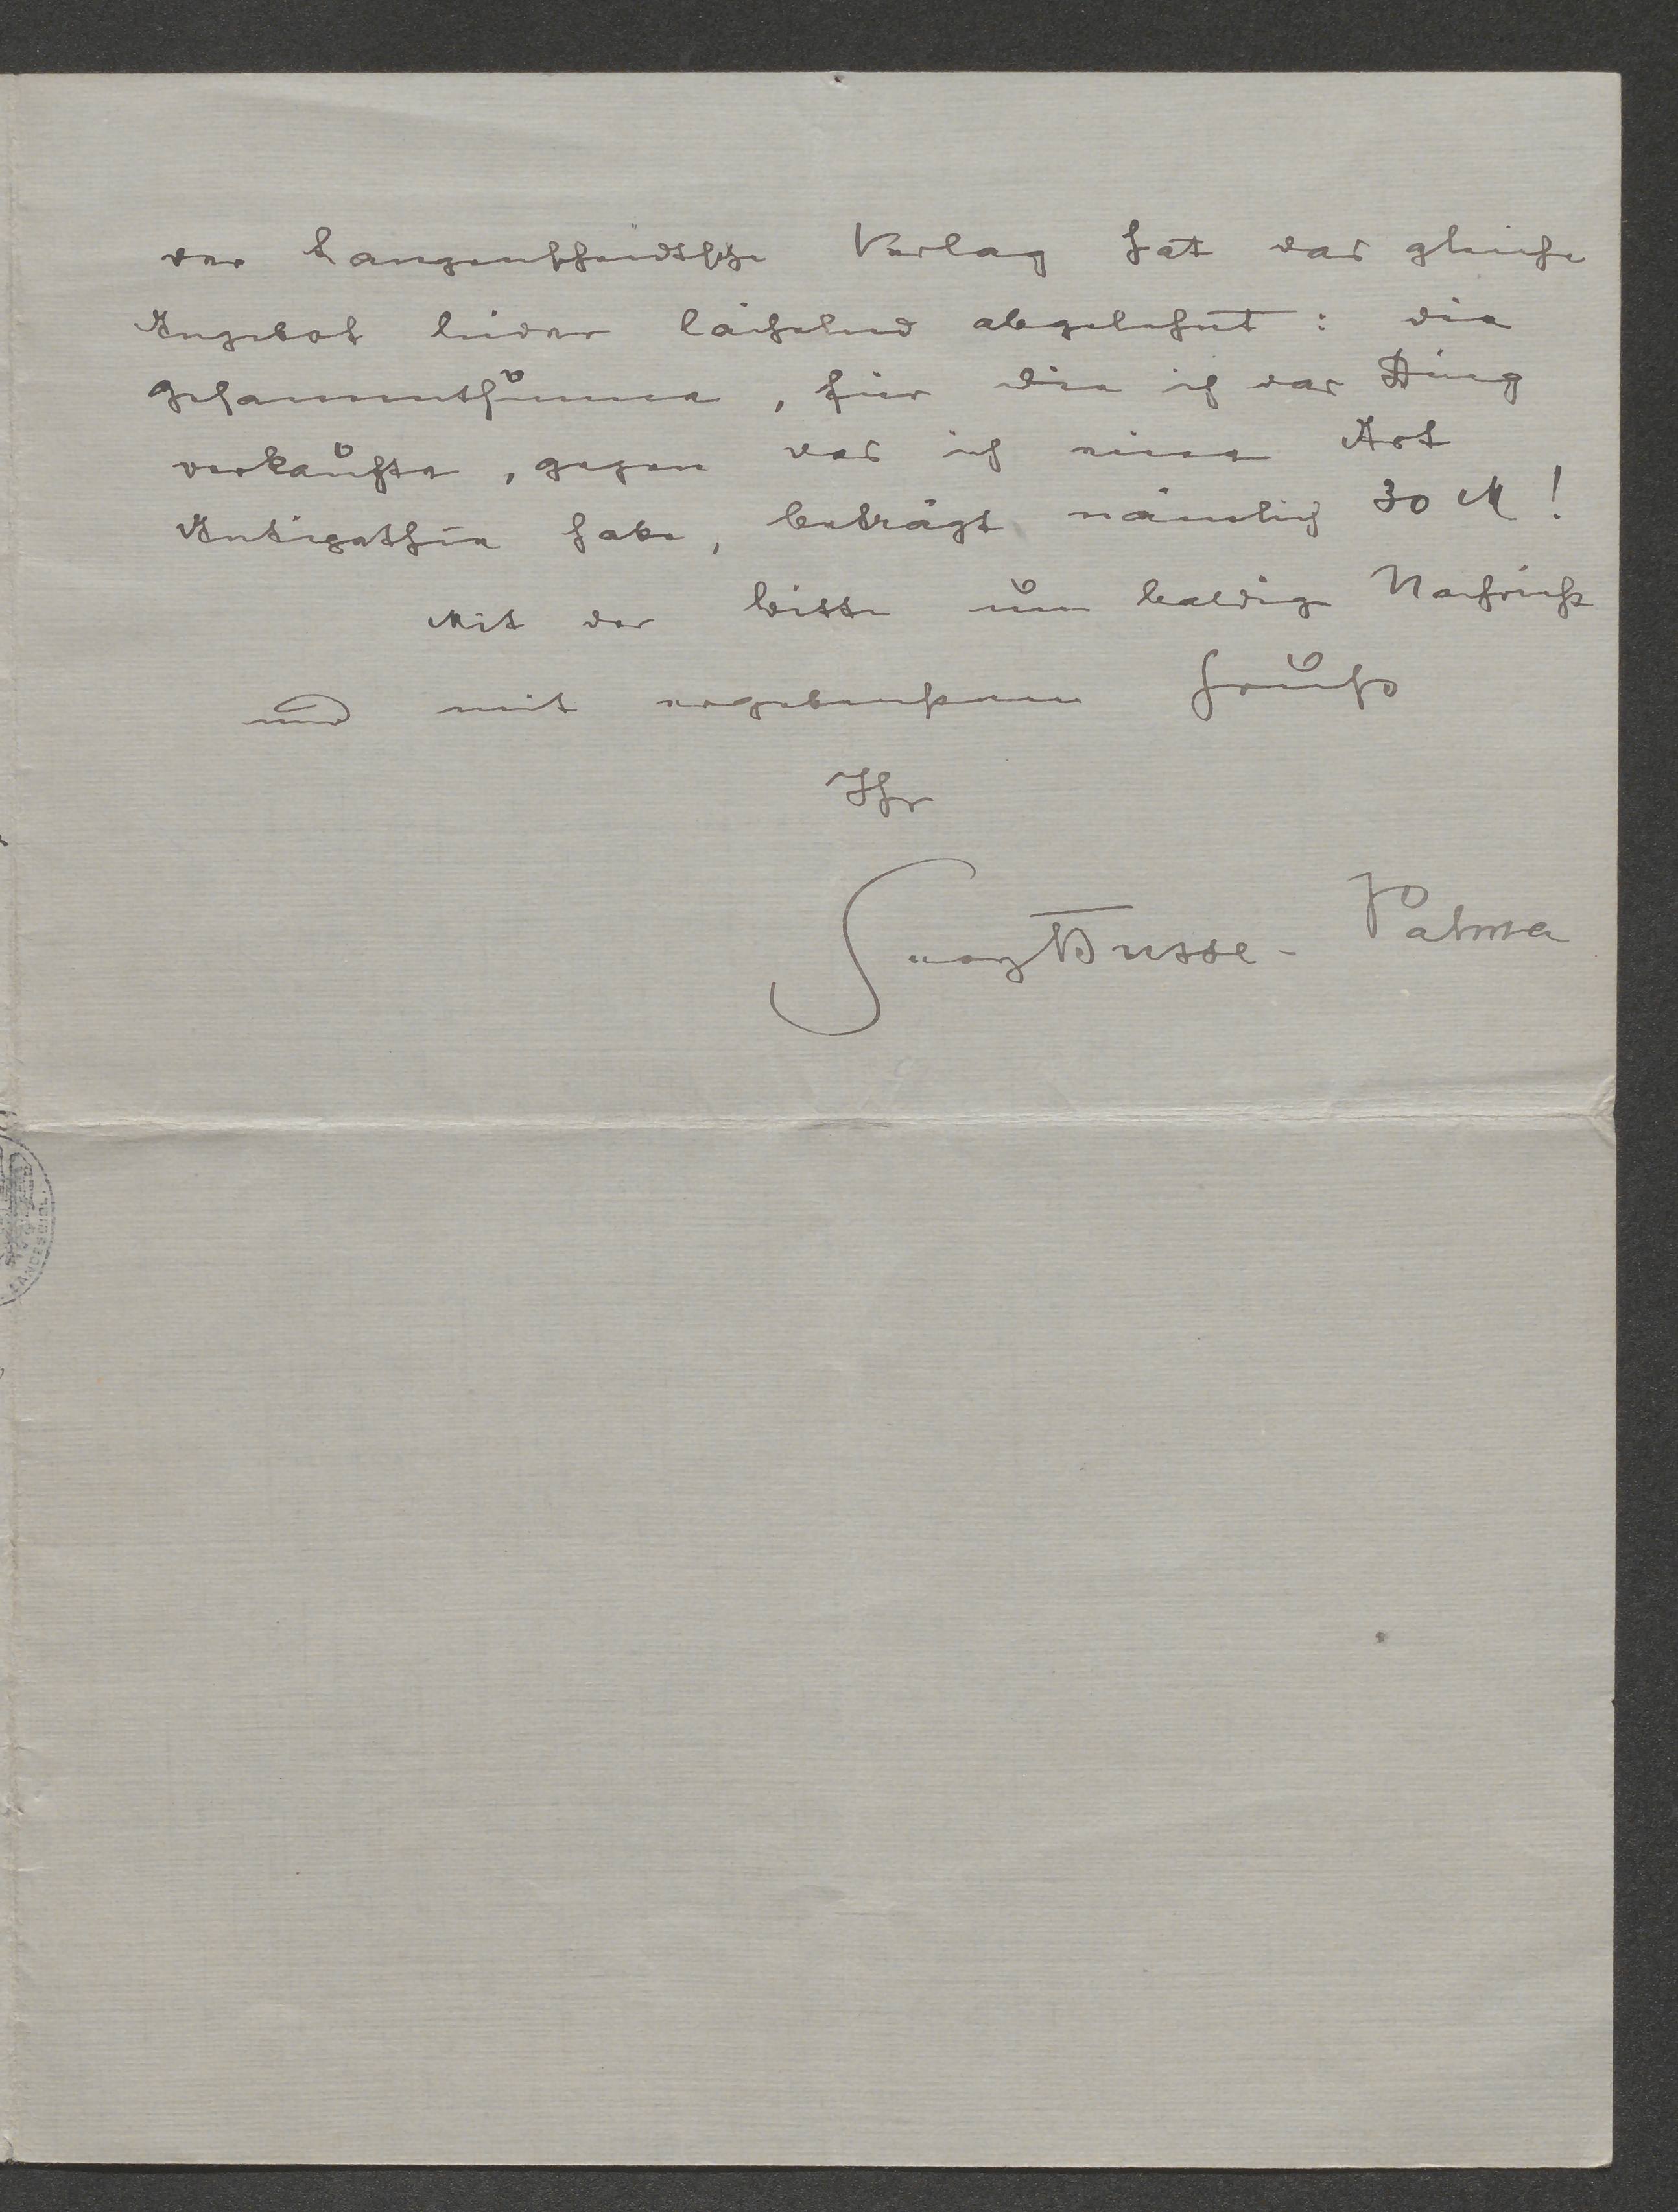 der Langenscheidtsche Verlag hat das gleiche
Angebot leider lächelnd abgelehnt: die
Gesammtsumme, für die ich das Ding
verkaufte, gegen das ich eine Art
Antipathie habe, beträgt nämlich 30 M!
Mit der Bitte um baldige Nachricht
und mit ergebenstem Gruß
Ihr
Georg Busse-Palma
LANDESBIBL.